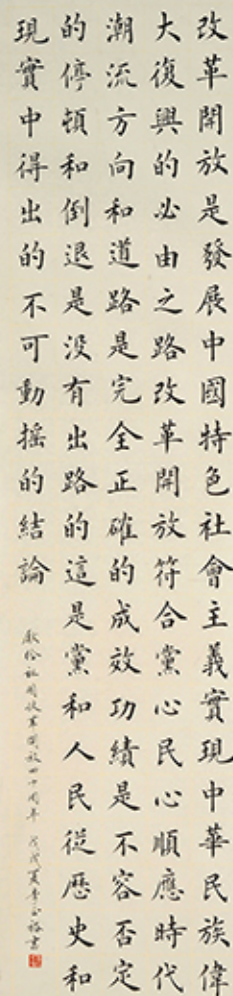 改革開放是發展中國特色社會主義實現中華民族偉
大復興的必由之路改革開放符合黨心民心順應時代
潮流方向和道路是完全正確的成效功績是不容否定
的停頓和倒退是没有出路的這是黨和人民從歷史和
現實中得出的不可動摇的結論
獻給祖國改革開放四十周年 戊戌夏李正裕書